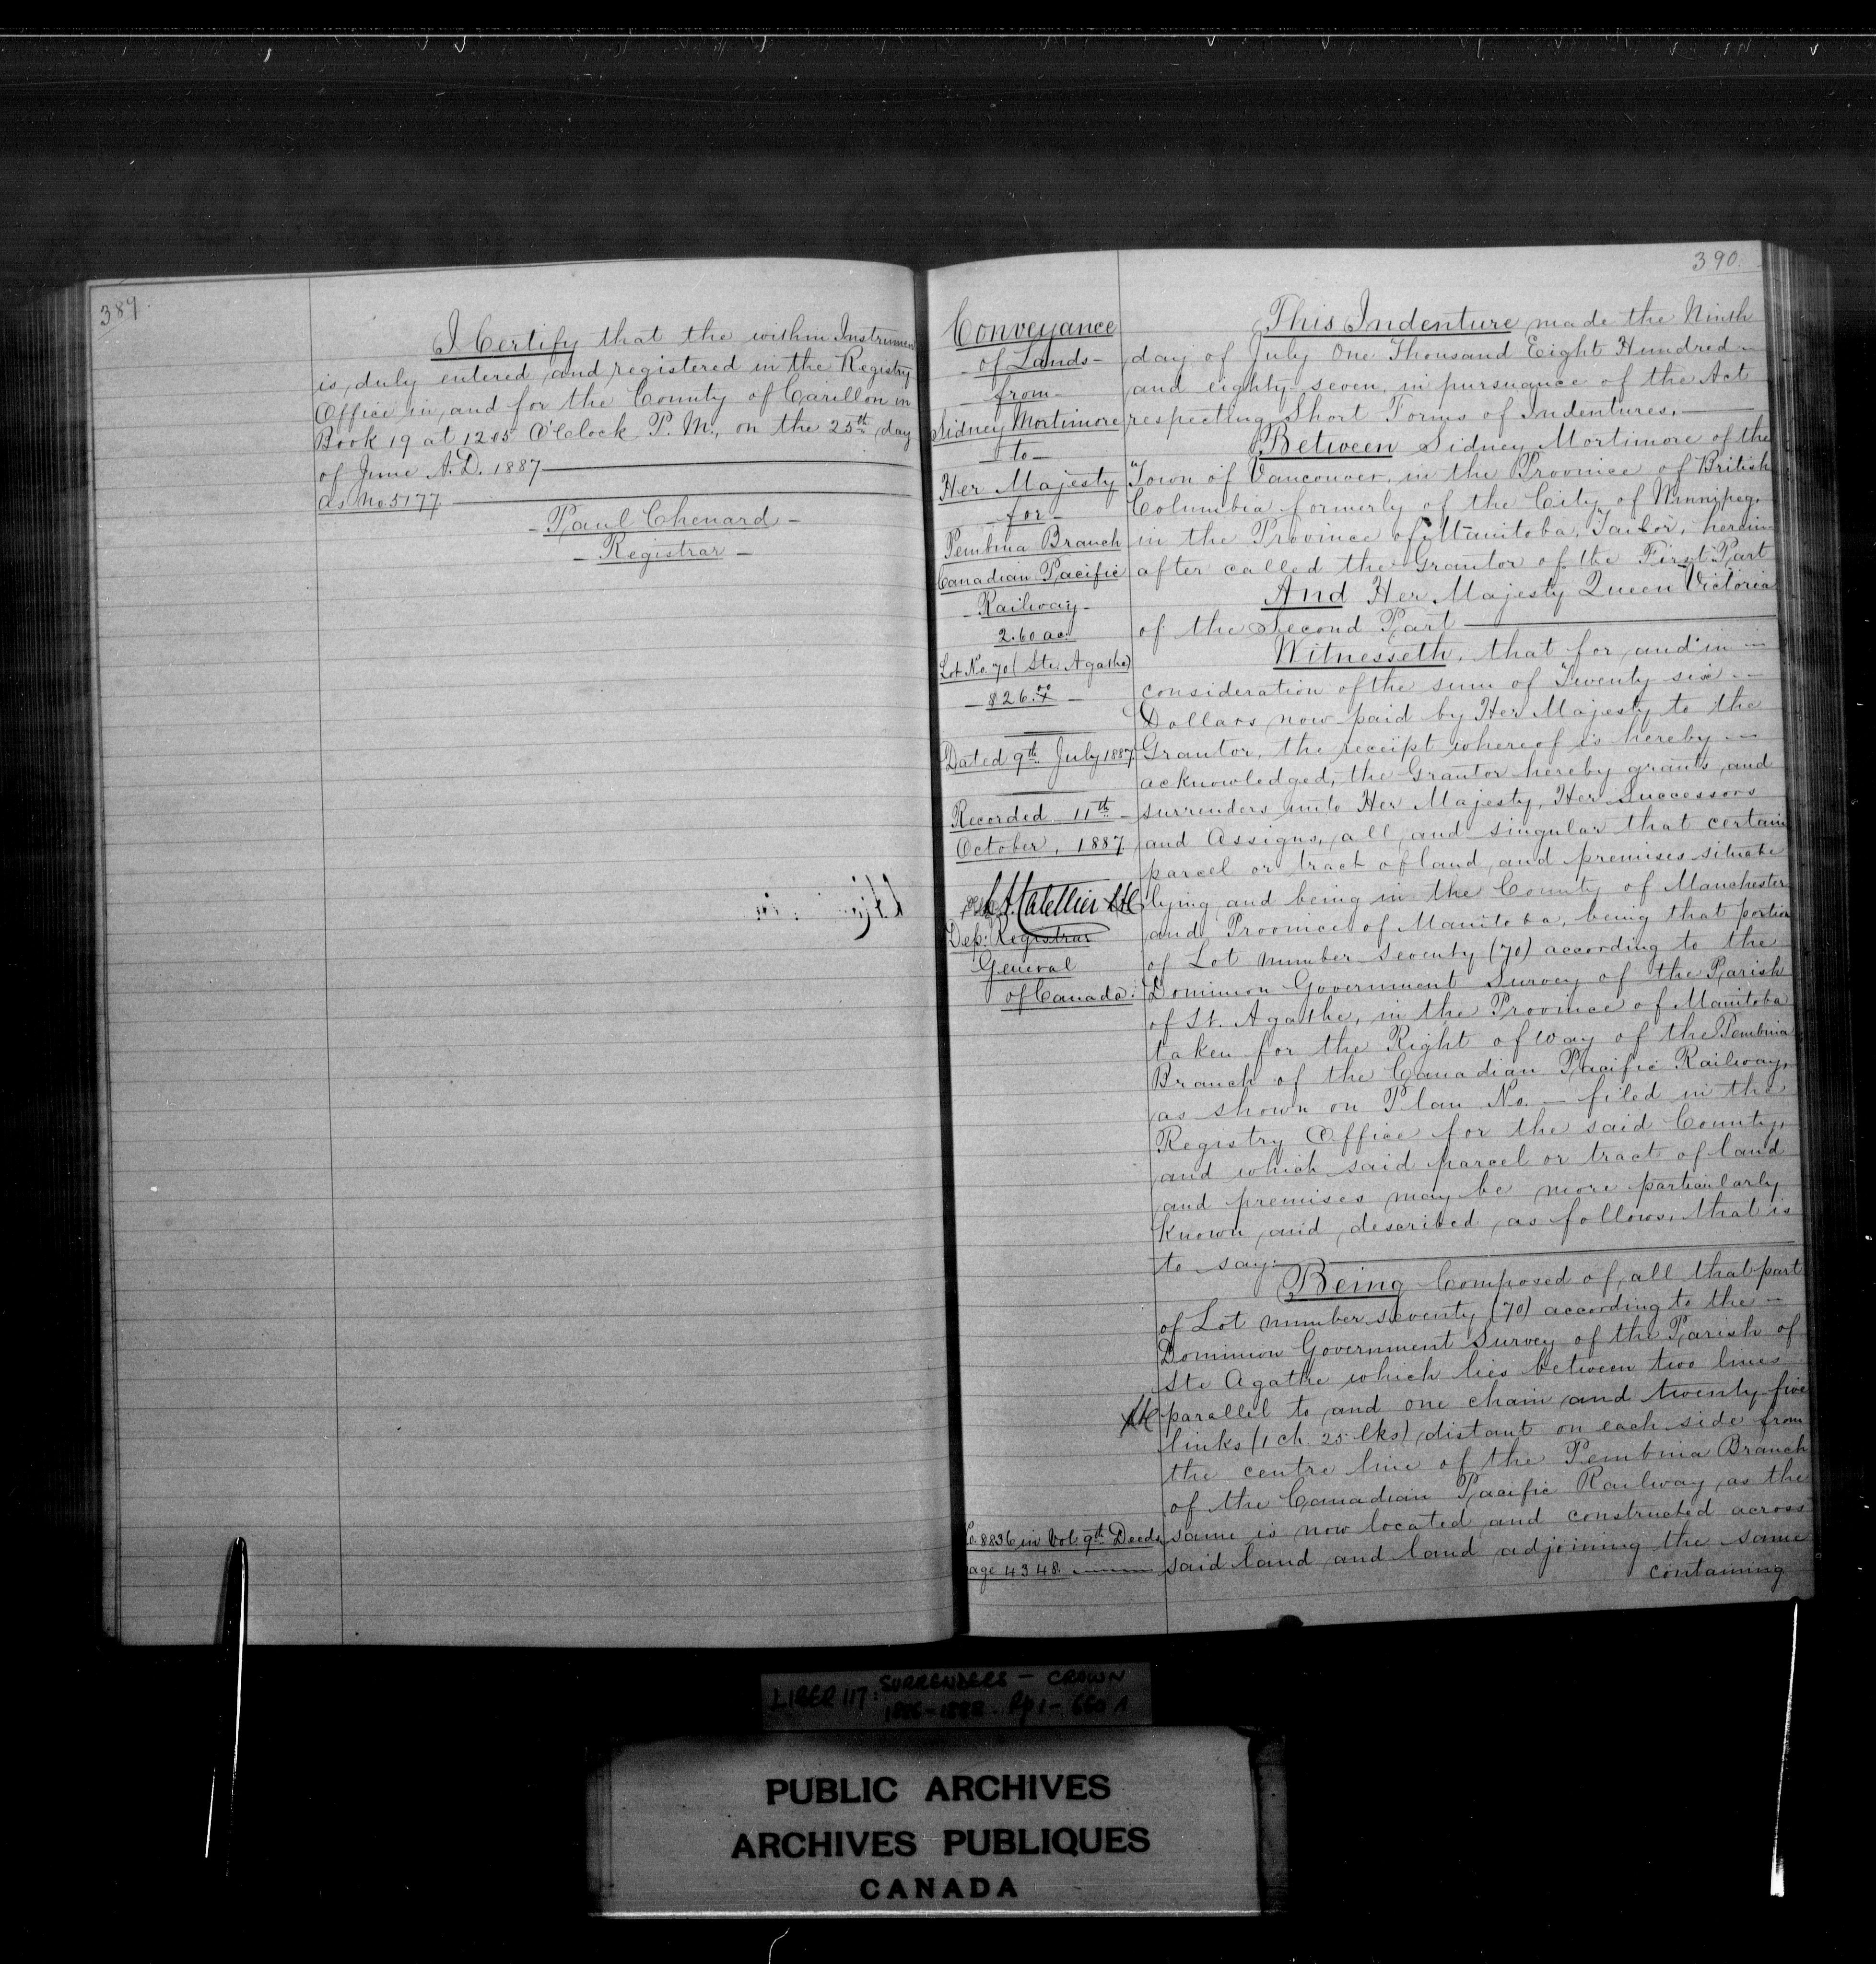 389
I Certify that the within Instrumen
is duly entered and registered in the Registry
Office in and for the County of Carillon in
Book 19 at 12.05 O'Clock P.M., on the 25th day
of June A.D. 1887
as No. 5177
Paul Chenard
Registrar
390.
Conveyance
of Lands
from
Sidney Mortimore
to
Her Majesty
for
Pembina Branch
Canadian Pacific
Railway
2.60 ac.
Lot No. 70 (Ste. Agathe)
$26.00
Dated 9th July 1887
Recorded 11th
October, 1887
Dep: Registrar
General
of Canada.
No. 8836 in Vol. 9th Deeds
age 4348.
This Indenture made the Ninth
day of July One Thousand Eight Hundred
and eighty-seven, in pursuance of the Act
respecting Short Forms of Indentures.
Between Sidney Mortimore of the
Town of Vancouver, in the Province of British
Columbia formerly of the City of Winnipeg,
in the Province of Manitoba, Tailor, herein-
after called the Grantor of the First Part
And Her Majesty Queen Victoria
of the Second Part
Witnesseth, that for and in
consideration of the sum of Twenty six
Dollars now paid by Her Majesty to the
Grantor, the receipt whereof is hereby
acknowledged, the Grantor hereby grants and
surrenders unto Her Majesty, Her Successors
and Assigns, all and singular that certain
parcel or tract of land and premises situate
lying and being in the County of Manchester
and Province of Manitoba, being that portion
of Lot number seventy (70) according to the
Dominion Government Survey of the Parish
of St. Agathe, in the Province of Manitoba
taken for the Right of Way of the Pembina
Branch of the Canadian Pacific Railway,
as shown on Plan No. — filed in the
Registry Office for the said County,
and which said parcel or tract of land
and premises may be more particularly
known and described as follows, that is
to say:
Being Composed of all that part
of Lot number seventy (70) according to the
Dominion Government Survey of the Parish of
Ste Agathe which lies between two lines
parallel to and one chain and twenty five
links (1 ch. 25 lks) distant on each side from
the centre line of the Pembina Branch
of the Canadian Pacific Railway as the
same is now located and constructed across
said land and land adjoining the same
containing
LIBER 117: SURRENDERS - CROWN
1886-1888. Pp 1-660 A
PUBLIC ARCHIVES
ARCHIVES PUBLIQUES
CANADA